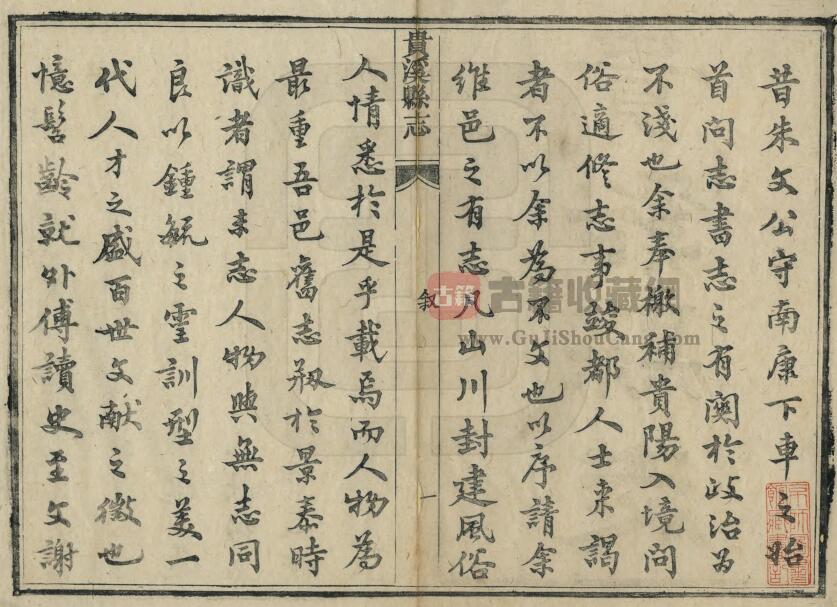 昔朱文公守南康下車之始
首問志書志之有関於政治爲
不淺也余奉檄補貴陽入境問
俗適修志事竣都人士来謁
者不以余為不文也以序請余
維邑之有志凡山川封建風俗
貴溪縣志
叙
一
人情悉於是乎載焉而人物為
最重吾邑舊志剏於景泰時
識者謂来志人物與無志同
良以鍾毓之靈訓型之美一
代人才之盛百世文献之徵也
憶髫齡就外傅讀史至文謝
古籍
古籍收藏網
www.GuJiShouCang.com